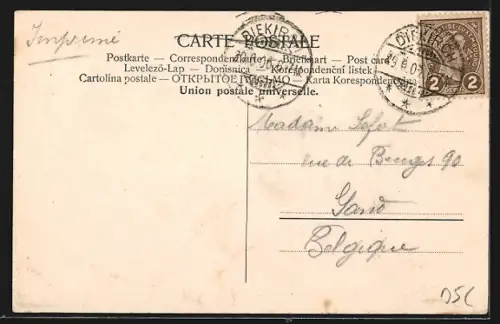 Imprimé
CARTE POSTALE
Postkarte — Correspondenzkarte — Briefkaart — Post card
Levelező-Lap — Dopisnica — Korespondenční listek
Cartolina postale — ОТКРЫТОЕ ПИСЬМО — Karta Korespondencyjna
Union postale universelle.
DIEKIRCH
DIEKIRCH
2 2
Madame
rue de Bruges 90
Gand
Belgique